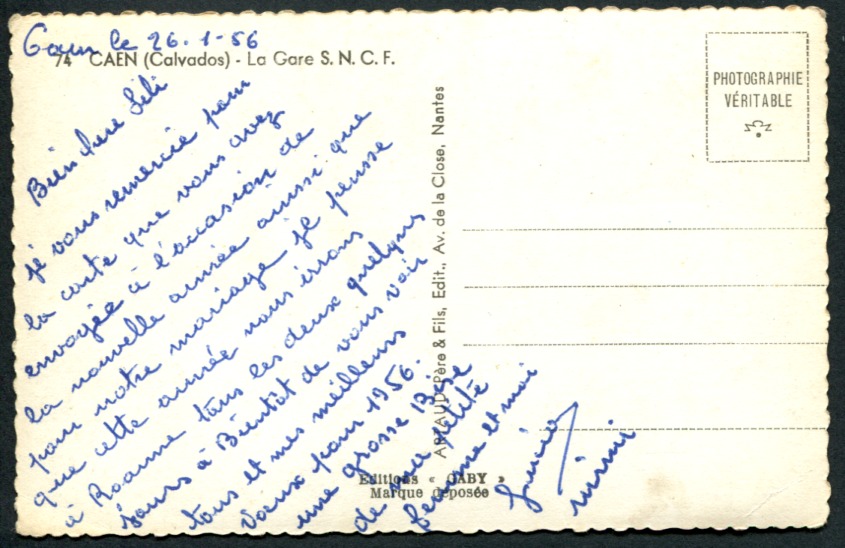 Caen le 26.1-56
74 CAEN (Calvados) - La Gare S. N. C. F.
PHOTOGRAPHIE
VÉRITABLE
Bien chere Lili
je vous remercie pour
la carte que vous avez
envoyée à l'occasion de
la nouvelle année ainsi que
pour notre mariage je pense
que cette année nous irrons
à Roanne tous les deux quelques
jours à Bientôt de vous voir
tous et mes meilleurs
Voeux pour 1956.
une grosse Bise
de ma petite
femme et moi
mimi
ARNAUD Père & Fils, Edit., Av. de la Close, Nantes
Editions « GABY »
Marque déposée